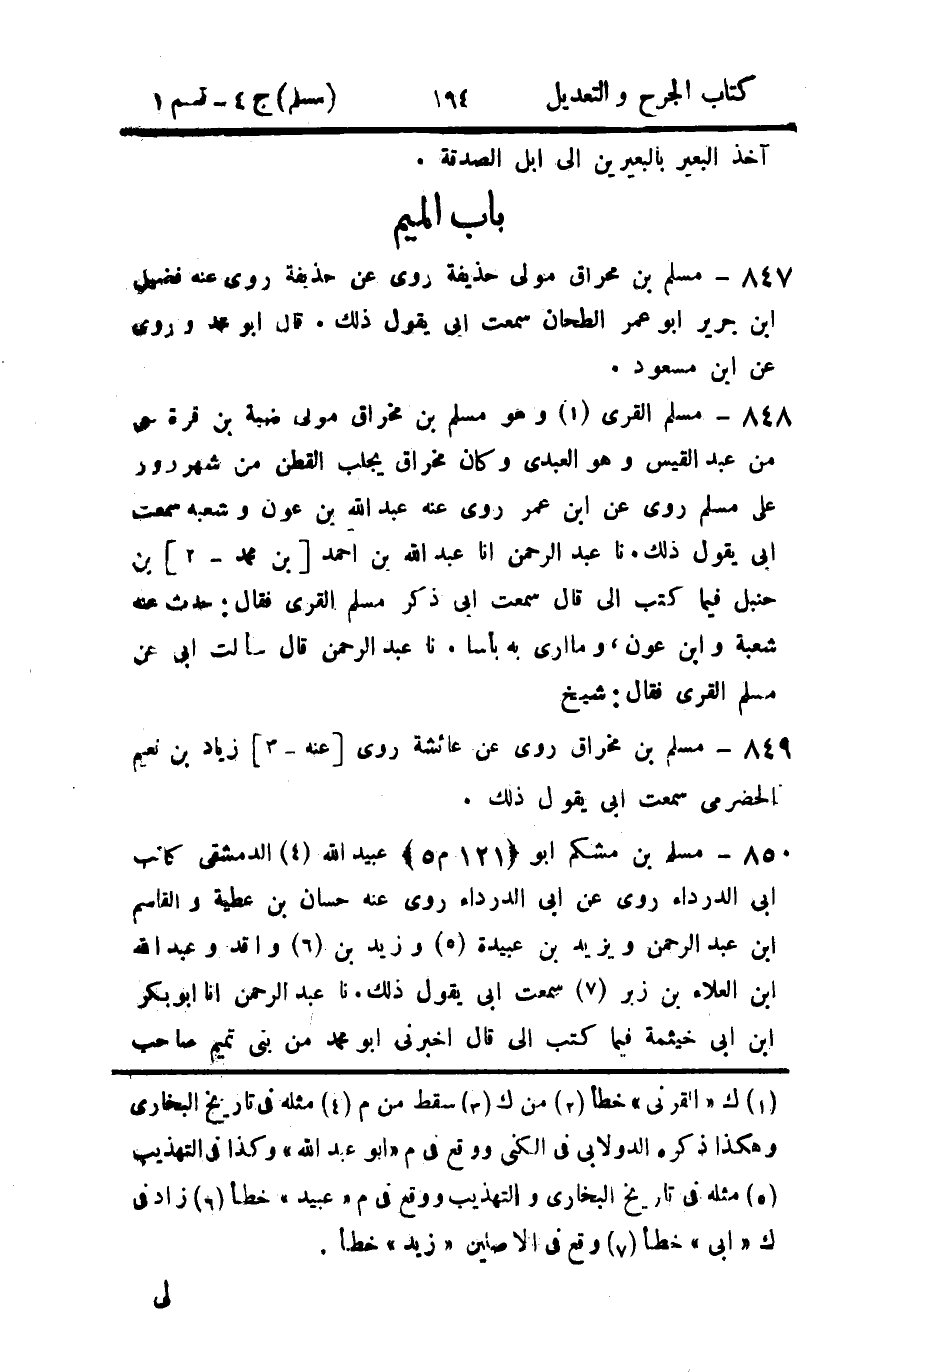 كتاب الجرح و التعديل ١٩٤ (مسلم) ج ٤ – قسم ١
آخذ البعير بالبعيرين الى ابل الصدقة .
باب الميم
٨٤٧ – مسلم بن محراق مولى حذيفة روى عن حذيفة روى عنه فضيل
ابن جرير ابو عمر الطحان سمعت ابى يقول ذلك . قال ابو محمد و روى
عن ابن مسعود .
٨٤٨ – مسلم القرى (١) و هو مسلم بن مخراق مولى ضبة بن قرة حى
من عبد القيس و هو العبدى و كان مخراق يجلب القطن من شهر زور
على مسلم روى عن ابن عمر روى عنه عبد الله بن عون و شعبه سمعت
ابى يقول ذلك . نا عبد الرحمن انا عبد الله بن احمد [بن محمد – ٢] بن
حنبل فيما كتب الى قال سمعت ابى ذكر مسلم القرى فقال : حدث عنه
شعبة و ابن عون ، و ما ارى به بأسا . نا عبد الرحمن قال سألت ابى عن
مسلم القرى فقال : شيخ
٨٤٩ – مسلم بن مخراق روى عن عائشة روى [عنه – ٣] زياد بن نعيم
الحضرمى سمعت ابى يقول ذلك .
٨٥٠ – مسلم بن مشكم ابو ﴿١٢١ م ٥﴾ عبيد الله (٤) الدمشقى كاتب
ابى الدرداء روى عن ابى الدرداء روى عنه حسان بن عطية و القاسم
ابن عبد الرحمن و يزيد بن عبيدة (٥) و زيد بن (٦) واقد و عبد الله
ابن العلاء بن زبر (٧) سمعت ابى يقول ذلك . نا عبد الرحمن انا ابو بكر
ابن ابى خيثمة فيما كتب الى قال اخبرنى ابو محمد من بنى تميم صاحب
(١) ك « القرنى » خطأ (٢) من ك (٣) سقط من م (٤) مثله فى تاريخ البخارى
و هكذا ذكره الدولابى فى الكنى و وقع فى م « ابو عبد الله » و كذا فى التهذيب
(٥) مثله فى تاريخ البخارى و التهذيب و وقع فى م « عبيد » خطأ (٦) زاد فى
ك « ابى » خطأ (٧) وقع فى الاصلين « زيد » خطأ .
لى